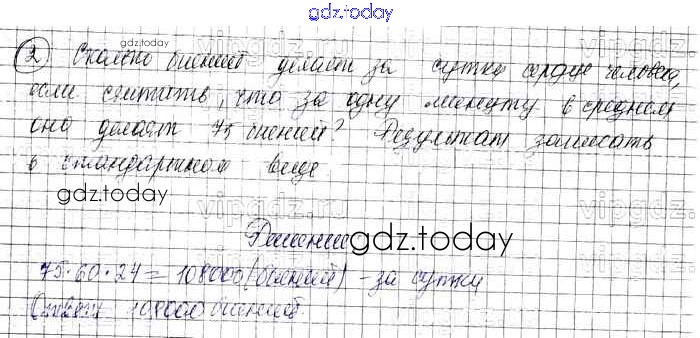 gdz.today
② Сколько биений делает за сутки сердце человека,
gdz.today
если считать, что за одну минуту в среднем
оно делает 75 биений? Результат записать
в стандартном виде
gdz.today
Решение
gdz.today
75·60·24=108000(биений) - за сутки
Ответ 108000 биений.